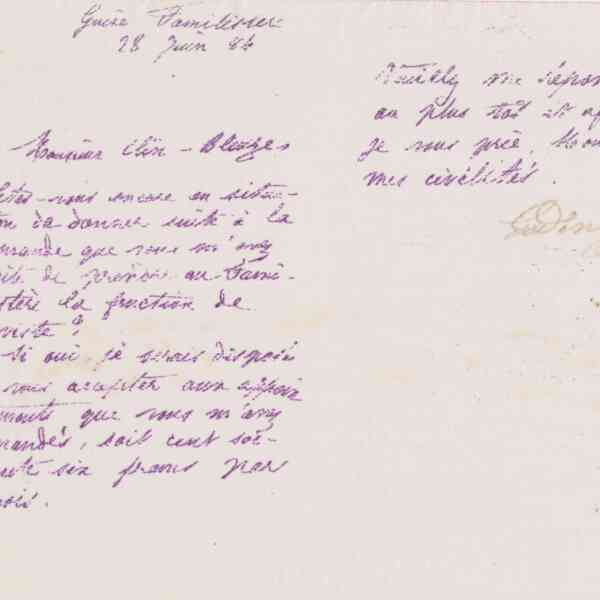 Guise Familistère
28 Juin 84
Monsieur Clin-Blinges
êtes-vous encore en situa-
on de donner suite à la
mande que vous m'avez
ite de prendre au Fami-
stère la fonction de
viste ?
Si oui je serais disposé
vous accepter aux appoin
ments que vous m'avez
mandés, soit cent soi-
ante six francs par
ois.
Veuillez me répon
au plus tôt et
je vous prie,
mes civilités.
Godin